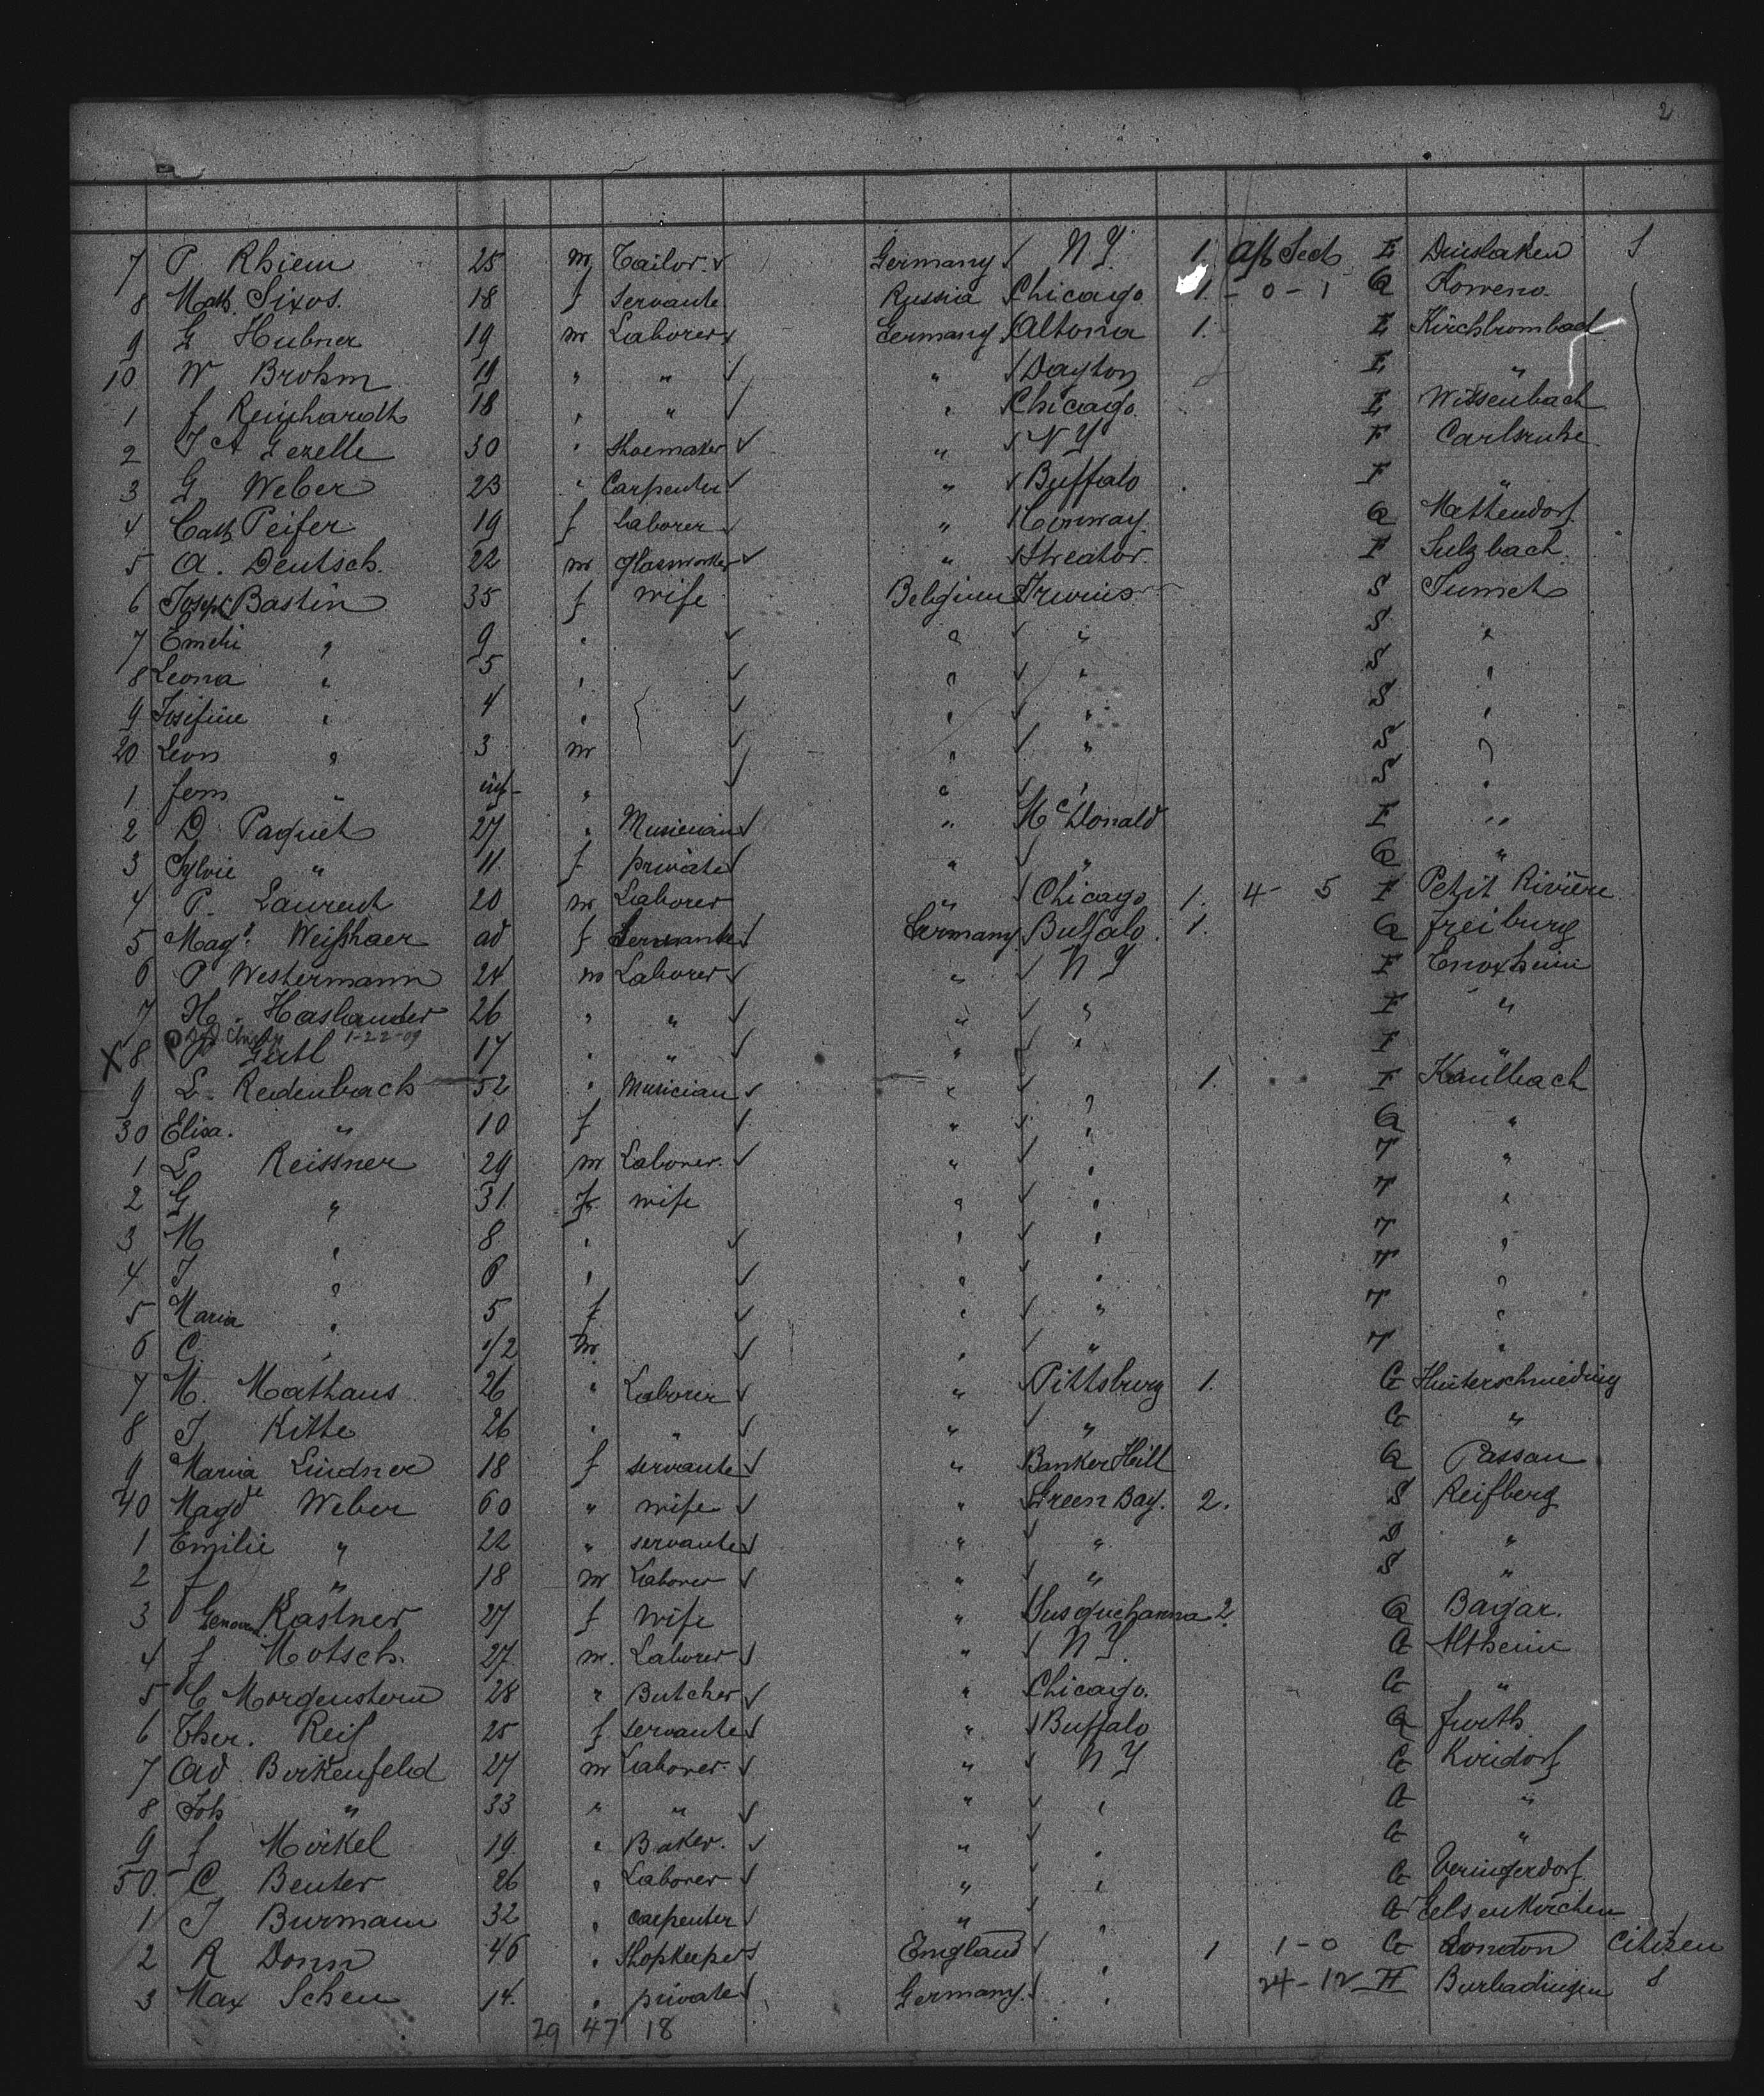 2
7 P. Rhiem 25 m Tailor. ✓ Germany ✓ N Y. 1. Aft Sect E Dinslaken S
8 Math. Sixos. 18 f Servante Russia Chicago 1. - 0 - 1 Q Koweno.
9 G Hubner 19 m Laborer ✓ Germany ✓ Altona 1. E Kirchbrombach
10 W Brohm 19 " " ✓ " ✓ Dayton E "
1 f Reinhardt 18 " " ✓ " ✓ Chicago. E Wissenbach
2 J A Gezelle 30 " Shoemaker ✓ " ✓ N Y F Carlsruhe
3 G Weber 23 " Carpenter ✓ " ✓ Buffalo F "
4 Cath Peifer 19 f Laborer ✓ " ✓ Conway. Q Mattendorf
5 A. Deutsch. 22 m Glasworker ✓ " ✓ Streator. F Sulzbach.
6 Joseph Bastin 35 f wife Belgium S Jumet
7 " 9 " ✓ " ✓ " S "
8 Leona " 5 " ✓ " ✓ " S "
9 Josefine " 4 " ✓ " ✓ " S "
20 Leon " 3 m ✓ " ✓ " S "
1 " inf " ✓ " ✓ " S "
2 D Paquet 27 " Musician ✓ " Mc Donald F "
3 Sylvie " 11. f private ✓ " ✓ " Q "
4 P. Laurent 20 m Laborer " ✓ Chicago 1. 4 - 5 F Petit Rivière
5 Magd. Weißhaer ad f Servante ✓ Germany Buffalo. 1. Q Freiburg
6 P Westermann 24 m Laborer ✓ " ✓ N Y F
7 H. Haslander 26 " " ✓ " ✓ " F "
1-22-09
X 8 P 17 " " ✓ " ✓ " F "
9 L. Reidenbach 52 " Musician ✓ " ✓ 1. F Kaulbach
30 Elisa. " 10 f ✓ " ✓ " Q "
1 L Reissner 29 m Laborer. ✓ " ✓ " T "
2 G " 31. f wife " ✓ " T "
3 M " 8 " ✓ " ✓ " T "
4 J " 6 " ✓ " ✓ " T "
5 Maria " 5 f ✓ " ✓ " T "
6 C. " 1/2 m ✓ " ✓ " T "
7 M. Mathaus 26 " Laborer ✓ " Pittsburg 1. G Hinterschmiding
8 J Kitte 26 " " ✓ " ✓ " G "
9 Maria Lindner 18 f servante ✓ " Banker Hill Q Passau
40 Magde Weber 60 " wife ✓ " Green Bay. 2. S Reifberg
1 Emilie " 22 " servante ✓ " ✓ " S "
2 f " 18 m Laborer ✓ " ✓ " S "
3 Kastner 27 f Wife " Susquehanna 2. Q Bagar.
4 f Motsch. 27 m. Laborer ✓ " ✓ N Y. G Altheim
5 C Morgenstern 28 " Butcher ✓ " Chicago. G "
6 Ther. Reif 25 f servante ✓ " ✓ Buffalo Q Furth
7 Ad Birkenfeld 27 m Laborer ✓ " ✓ N Y G
8 Joh " 33 " " ✓ " ✓ " G "
9 f Mirkel 19. " Baker. ✓ " ✓ " G "
50. C Benter 26 " Laborer ✓ " ✓ " G Veringerdorf
1 J Burmann 32 " carpenter ✓ " ✓ " G Gelsenkirchen
2 R Donn 46 " Shopkeeper ✓ England ✓ " 1 1 - 0 G London Citizen
3 Max Scheu 14. " private ✓ Germany. ✓ " 24 - 12 H Burladingen S
29 47 18